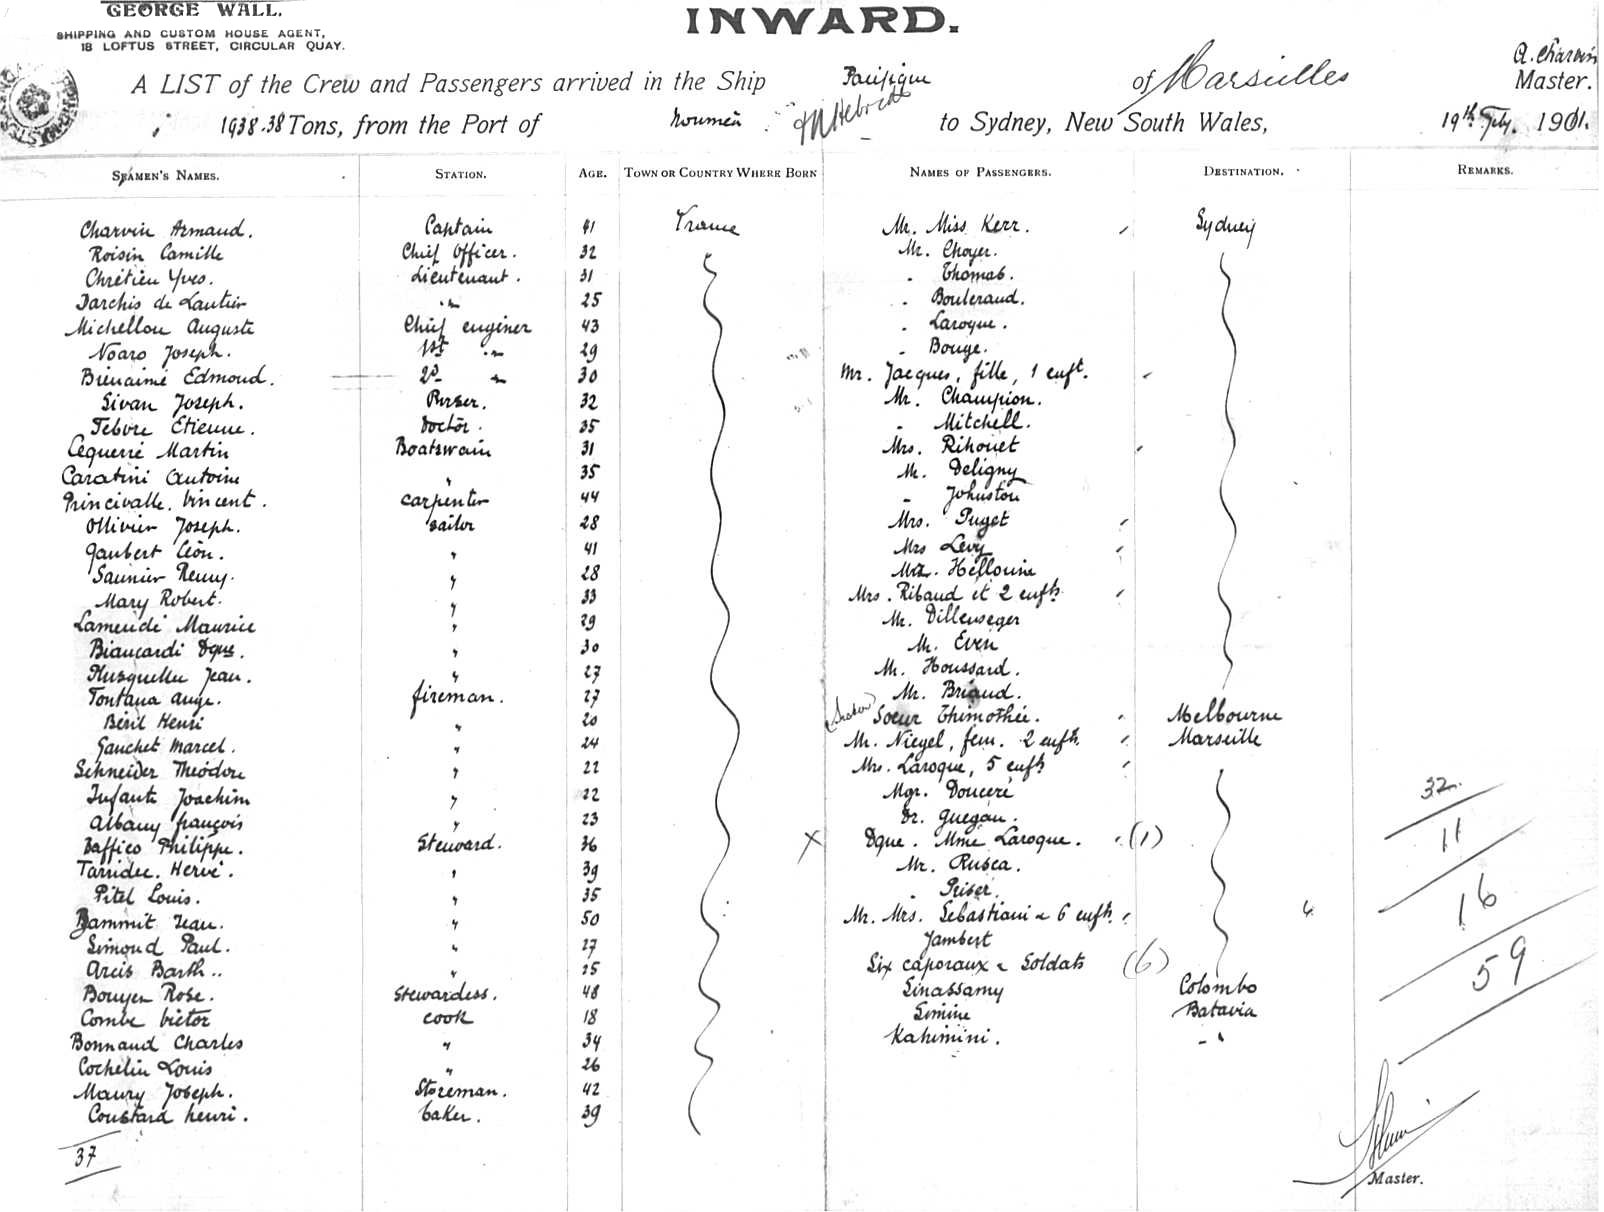 GEORGE WALL.
SHIPPING AND CUSTOM HOUSE AGENT,
18 LOFTUS STREET, CIRCULAR QUAY.
INWARD.
A LIST of the Crew and Passengers arrived in the Ship Pacifique of Marseilles A. Charvin Master.
1938.38 Tons, from the Port of Noumea to Sydney, New South Wales, 19th Fby. 1901.
SEAMEN'S NAMES. STATION. AGE. TOWN OR COUNTRY WHERE BORN NAMES OF PASSENGERS. DESTINATION. REMARKS.
Charvin Armand. Captain 41 France Mr. Miss Kerr. Sydney
Roisin Camille Chief Officer. 32 Mr. Choyer.
Chrétien Yves. Lieutenant. 31 Thomas.
Darchis de Lautier " 25 Bouteraud.
Michellon Auguste Chief enginer 43 Laroque.
Noaro Joseph. 1st " 29 Bouge.
Bienaimé Edmond. 2d " 30 Mr. Jacques, fille, 1 enft.
Sivan Joseph. Purser. 32 Mr. Champion.
Febvre Etienne. Doctor. 35 Mitchell.
Cequerré Martin Boatswain 31 Mrs. Rihouet
Caratini Antoine " 35 Mr. Deligny
Princivalle. Vincent. carpenter 44 Johnston
Ollivier Joseph. sailor 28 Mrs. Puget
Gaubert Léon. " 41 Mrs Levy
Saunier Remy. " 28 Hellouine
Mary Robert. " 33 Mrs. Ribaud et 2 enfts
Lamendé Maurice " 29 Mr. Dillenseger
Biancardi Dque. " 30 Mr. Even
Plusquellec Jean. " 27 Mr. Houssard.
Fontana Ange. fireman. 27 Mr. Briand.
Béril Henri " 20 Soeur Thimothée. Melbourne
Gauchet Marcel. " 24 Mr. Niegel, fem. 2 enfts Marseille
Schneider Théodore " 22 Mrs. Laroque, 5 enfts
Infante Joachim " 22 Mgr. Douceré
Albany françois " 23 Dr. Guegan.
Baffico Philippe. Steward. 36 X Dque. Mme Laroque. (1)
Tanidec. Hervé. " 39 Mr. Rusca.
Pitel Louis. " 35 Priser.
Zammit Jean. " 50 Mr. Mrs. Sebastiani & 6 enfts
Simond Paul. " 27 Jambert
Arcis Barth.. " 25 Six caporaux & Soldats (6)
Bouyer Rose. Stewardess. 48 Sinassamy Colombo
Combe Victor cook 18 Simine Batavia
Bonnaud Charles " 34 Kahimini. - "
Cochelin Louis " 26
Maury Joseph. Storeman. 42
Coustard henri. baker. 39
37
32
11
16
59
Master.